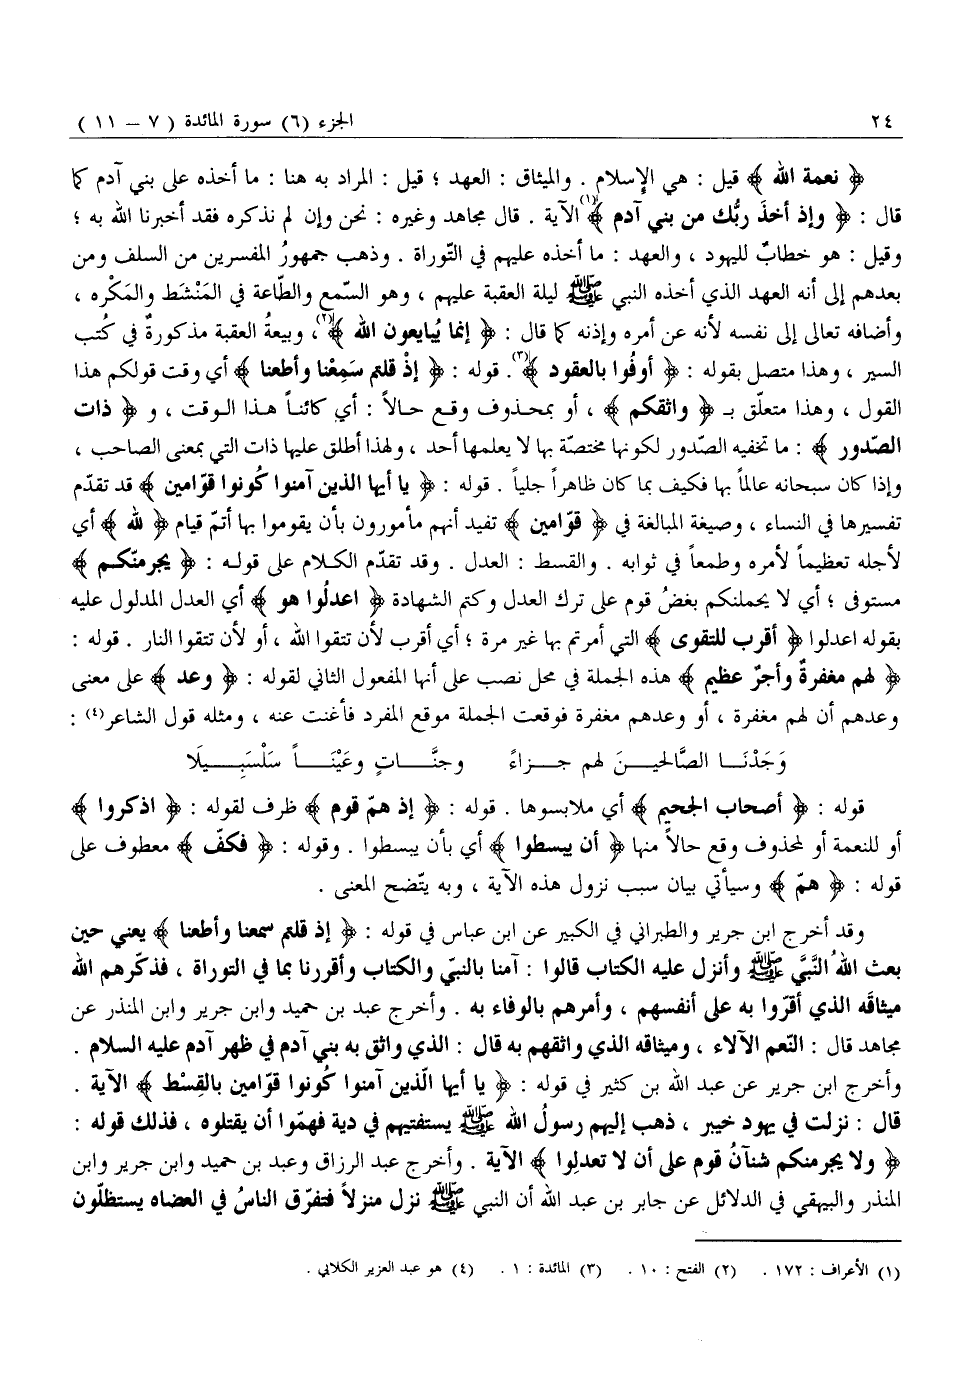 ٢٤ الجزء (٦) سورة المائدة ( ٧ - ١١ )
﴿ نعمة الله ﴾ قيل : هي الإسلام . والميثاق : العهد ؛ قيل : المراد به هنا : ما أخذه على بني آدم كما
قال : ﴿ وإذ أخذَ ربُّك من بني آدم ﴾(١) الآية . قال مجاهد وغيره : نحن وإن لم نذكره فقد أخبرنا الله به ؛
وقيل : هو خطابٌ لليهود ، والعهد : ما أخذه عليهم في التّوراة . وذهب جمهورُ المفسرين من السلف ومن
بعدهم إلى أنه العهد الذي أخذه النبي ﷺ ليلة العقبة عليهم ، وهو السّمع والطّاعة في المَنْشَط والمَكْره ،
وأضافه تعالى إلى نفسه لأنه عن أمره وإذنه كما قال : ﴿ إنما يُبايعون الله ﴾(٢)، وبيعةُ العقبة مذكورةٌ في كُتب
السير ، وهذا متصل بقوله : ﴿ أوفُوا بالعقود ﴾(٣). قوله : ﴿ إذْ قلتم سَمِعْنا وأطعنا ﴾ أي وقت قولكم هذا
القول ، وهذا متعلّق بـ ﴿ واثقكم ﴾ ، أو بمحذوف وقع حالاً : أي كائناً هذا الوقت ، و ﴿ ذات
الصّدور ﴾ : ما تخفيه الصّدور لكونها مختصّة بها لا يعلمها أحد ، ولهذا أطلق عليها ذات التي بمعنى الصاحب ،
وإذا كان سبحانه عالماً بها فكيف بما كان ظاهراً جلياً . قوله : ﴿ يا أيها الذين آمنوا كُونوا قوّامين ﴾ قد تقدّم
تفسيرها في النساء ، وصيغة المبالغة في ﴿ قوّامين ﴾ تفيد أنهم مأمورون بأن يقوموا بها أتمّ قيام ﴿ لله ﴾ أي
لأجله تعظيماً لأمره وطمعاً في ثوابه . والقسط : العدل . وقد تقدّم الكلام على قوله : ﴿ يجرمنّكم ﴾
مستوفى ؛ أي لا يحملنكم بغضُ قوم على ترك العدل وكتم الشهادة ﴿ اعدلُوا هو ﴾ أي العدل المدلول عليه
بقوله اعدلوا ﴿ أقرب للتقوى ﴾ التي أمرتم بها غير مرة ؛ أي أقرب لأن تتقوا الله ، أو لأن تتقوا النار . قوله :
﴿ لهم مغفرةٌ وأجرٌ عظيم ﴾ هذه الجملة في محل نصب على أنها المفعول الثاني لقوله : ﴿ وعد ﴾ على معنى
وعدهم أن لهم مغفرة ، أو وعدهم مغفرة فوقعت الجملة موقع المفرد فأغنت عنه ، ومثله قول الشاعر(٤) :
وَجَدْنَا الصَّالحينَ لهم جزاءً وجنَّاتٍ وعَيْنَاً سَلْسَبِيلَا
قوله : ﴿ أصحاب الجحيم ﴾ أي ملابسوها . قوله : ﴿ إذ همّ قوم ﴾ ظرف لقوله : ﴿ اذكروا ﴾
أو للنعمة أو لمحذوف وقع حالاً منها ﴿ أن يبسطوا ﴾ أي بأن يبسطوا . وقوله : ﴿ فكفّ ﴾ معطوف على
قوله : ﴿ همّ ﴾ وسيأتي بيان سبب نزول هذه الآية ، وبه يتّضح المعنى .
وقد أخرج ابن جرير والطبراني في الكبير عن ابن عباس في قوله : ﴿ إذ قلتم سمعنا وأطعنا ﴾ يعني حين
بعث اللهُ النَّبيَّ ﷺ وأنزل عليه الكتاب قالوا : آمنا بالنبيّ والكتاب وأقررنا بما في التوراة ، فذكّرهم الله
ميثاقَه الذي أقرّوا به على أنفسهم ، وأمرهم بالوفاء به . وأخرج عبد بن حميد وابن جرير وابن المنذر عن
مجاهد قال : النّعم الآلاء ، وميثاقه الذي واثقهم به قال : الذي واثق به بني آدم في ظهر آدم عليه السلام .
وأخرج ابن جرير عن عبد الله بن كثير في قوله : ﴿ يا أيها الّذين آمنوا كُونوا قوّامين بالقِسْط ﴾ الآية .
قال : نزلت في يهود خيبر ، ذهب إليهم رسولُ الله ﷺ يستفتيهم في دية فهمّوا أن يقتلوه ، فذلك قوله :
﴿ ولا يجرمنكم شنآنُ قوم على أن لا تعدلوا ﴾ الآية . وأخرج عبد الرزاق وعبد بن حميد وابن جرير وابن
المنذر والبيهقي في الدلائل عن جابر بن عبد الله أن النبي ﷺ نزل منزلاً فتفرّق الناسُ في العضاه يستظلّون
(١) الأعراف : ١٧٢ . (٢) الفتح : ١٠ . (٣) المائدة : ١ . (٤) هو عبد العزيز الكلابي .